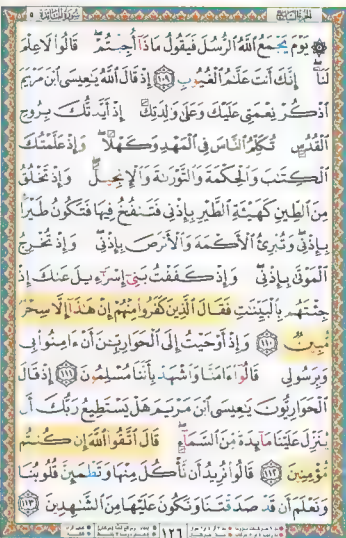 الجزء السابع سورة المائدة ٥
۞ يَوْمَ يَجْمَعُ ٱللَّهُ ٱلرُّسُلَ فَيَقُولُ مَاذَآ أُجِبْتُمْ ۖ قَالُوا۟ لَا عِلْمَ
لَنَآ ۖ إِنَّكَ أَنتَ عَلَّٰمُ ٱلْغُيُوبِ ١٠٩ إِذْ قَالَ ٱللَّهُ يَٰعِيسَى ٱبْنَ مَرْيَمَ
ٱذْكُرْ نِعْمَتِى عَلَيْكَ وَعَلَىٰ وَٰلِدَتِكَ إِذْ أَيَّدتُّكَ بِرُوحِ
ٱلْقُدُسِ تُكَلِّمُ ٱلنَّاسَ فِى ٱلْمَهْدِ وَكَهْلًا ۖ وَإِذْ عَلَّمْتُكَ
ٱلْكِتَٰبَ وَٱلْحِكْمَةَ وَٱلتَّوْرَىٰةَ وَٱلْإِنجِيلَ ۖ وَإِذْ تَخْلُقُ
مِنَ ٱلطِّينِ كَهَيْـَٔةِ ٱلطَّيْرِ بِإِذْنِى فَتَنفُخُ فِيهَا فَتَكُونُ طَيْرًۢا
بِإِذْنِى ۖ وَتُبْرِئُ ٱلْأَكْمَهَ وَٱلْأَبْرَصَ بِإِذْنِى ۖ وَإِذْ تُخْرِجُ
ٱلْمَوْتَىٰ بِإِذْنِى ۖ وَإِذْ كَفَفْتُ بَنِىٓ إِسْرَٰٓءِيلَ عَنكَ إِذْ
جِئْتَهُم بِٱلْبَيِّنَٰتِ فَقَالَ ٱلَّذِينَ كَفَرُوا۟ مِنْهُمْ إِنْ هَٰذَآ إِلَّا سِحْرٌ
مُّبِينٌ ١١٠ وَإِذْ أَوْحَيْتُ إِلَى ٱلْحَوَارِيِّۦنَ أَنْ ءَامِنُوا۟ بِى
وَبِرَسُولِى قَالُوٓا۟ ءَامَنَّا وَٱشْهَدْ بِأَنَّنَا مُسْلِمُونَ ١١١ إِذْ قَالَ
ٱلْحَوَارِيُّونَ يَٰعِيسَى ٱبْنَ مَرْيَمَ هَلْ يَسْتَطِيعُ رَبُّكَ أَن
يُنَزِّلَ عَلَيْنَا مَآئِدَةً مِّنَ ٱلسَّمَآءِ ۖ قَالَ ٱتَّقُوا۟ ٱللَّهَ إِن كُنتُم
مُّؤْمِنِينَ ١١٢ قَالُوا۟ نُرِيدُ أَن نَّأْكُلَ مِنْهَا وَتَطْمَئِنَّ قُلُوبُنَا
وَنَعْلَمَ أَن قَدْ صَدَقْتَنَا وَنَكُونَ عَلَيْهَا مِنَ ٱلشَّٰهِدِينَ ١١٣
١٢٦